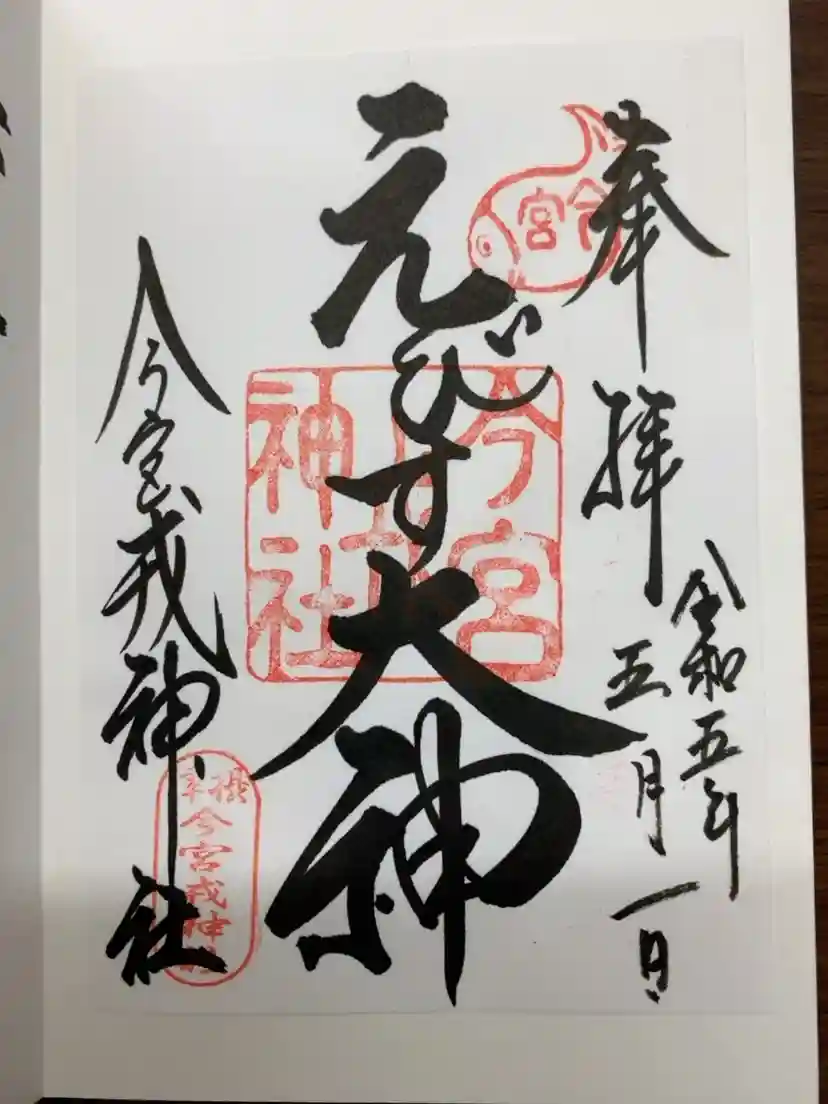 奉拝
令和五年
五月一日
えびす大神
今宮戎神社
今宮
今宮戎神社
摂津
今宮戎神社